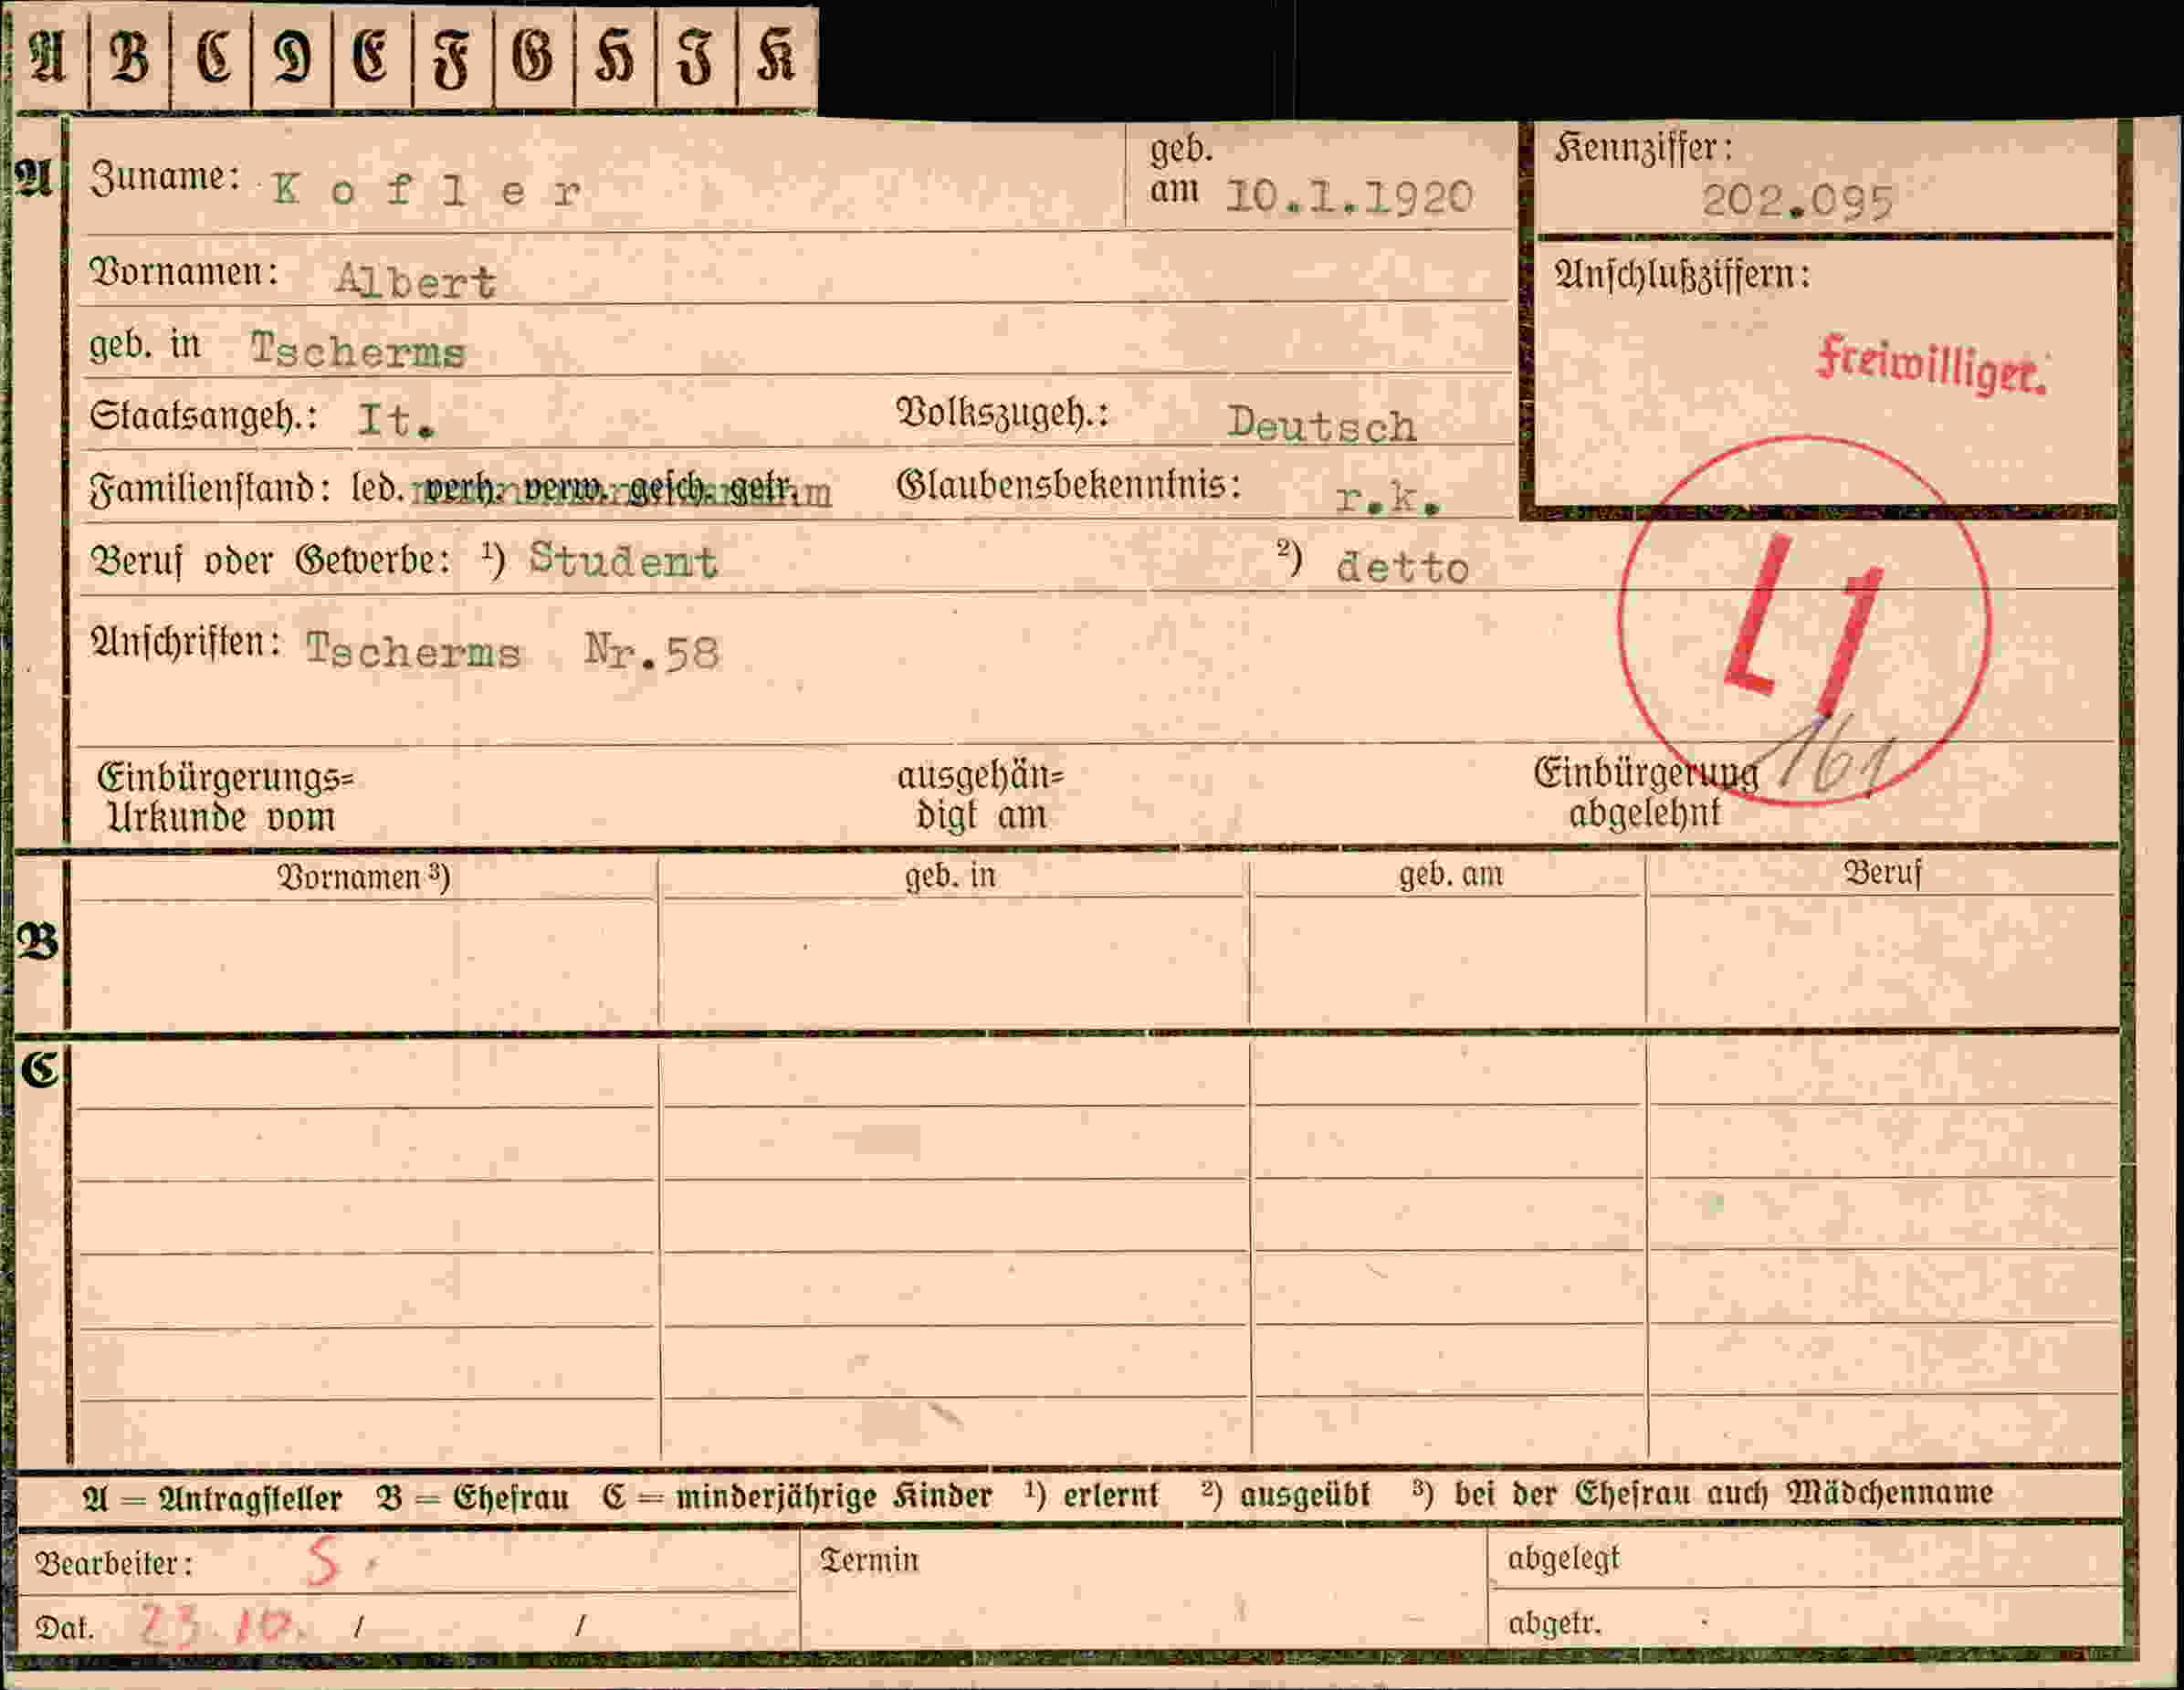 A B C D E F G H I K
A Zuname: Kofler geb. am 10.1.1920 Kennziffer: 202.095
Vornamen: Albert Anschlußziffern:
geb. in Tscherms Freiwilliger.
Staatsangeh.: It. Volkszugeh.: Deutsch
Familienstand: led. verh. verw. gesch. getr. Glaubensbekenntnis: r.k.
Beruf oder Gewerbe: ¹) Student ²) detto
L1
Anschriften: Tscherms Nr.58
161
Einbürgerungs= ausgehän= Einbürgerung
Urkunde vom digt am abgelehnt
Vornamen ³) geb. in geb. am Beruf
B
C
A = Antragsteller B = Ehefrau C = minderjährige Kinder ¹) erlernt ²) ausgeübt ³) bei der Ehefrau auch Mädchenname
Bearbeiter: S. Termin abgelegt
Dat. 23.10. / / abgetr.